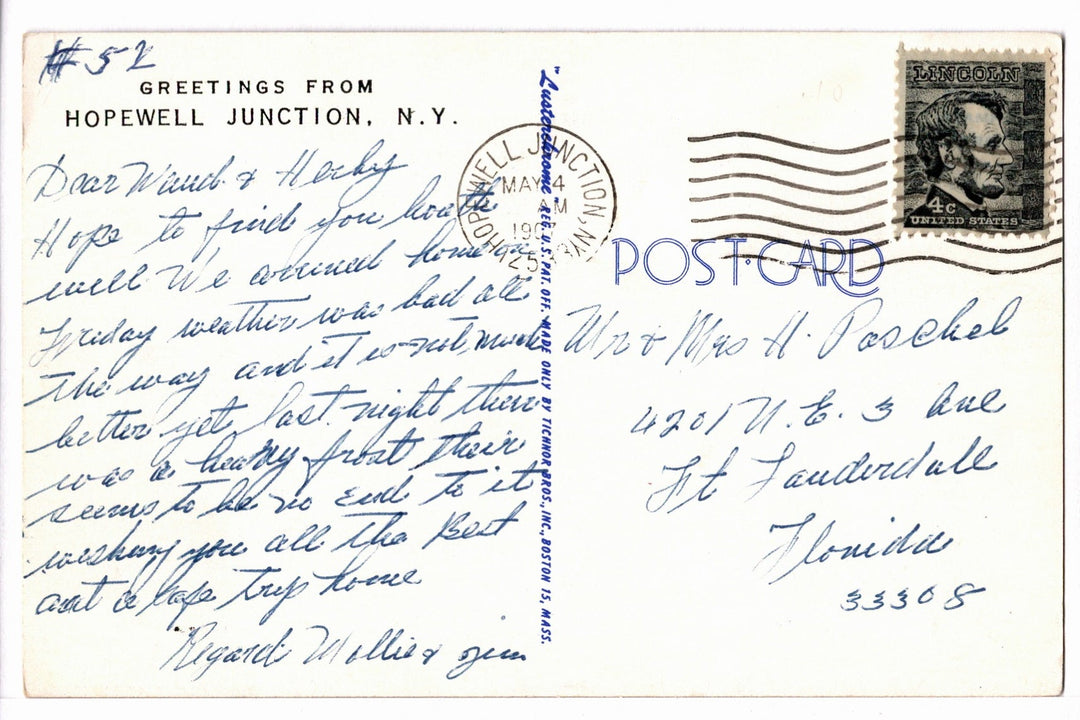 #52
GREETINGS FROM
HOPEWELL JUNCTION, N.Y.
Dear & Herby
Hope to find you both
well We arrived home on
Friday weather was bad all
the way and it is not much
better yet last night there
was a heavy frost their
seems to be no End to it
wishing you all the Best
a safe trip home
Regard Mollie & Jim
"Lusterchrome" REG. U.S. PAT. OFF. MADE ONLY BY TICHNOR BROS., INC., BOSTON 15, MASS.
HOPEWELL JUNCTION, N.Y.
MAY 4
AM
12533
LINCOLN
4c
UNITED STATES
POST CARD
Mr & Mrs H. Paschel
4201 N.E. 3 Ave
Ft Lauderdall
Florida
33308